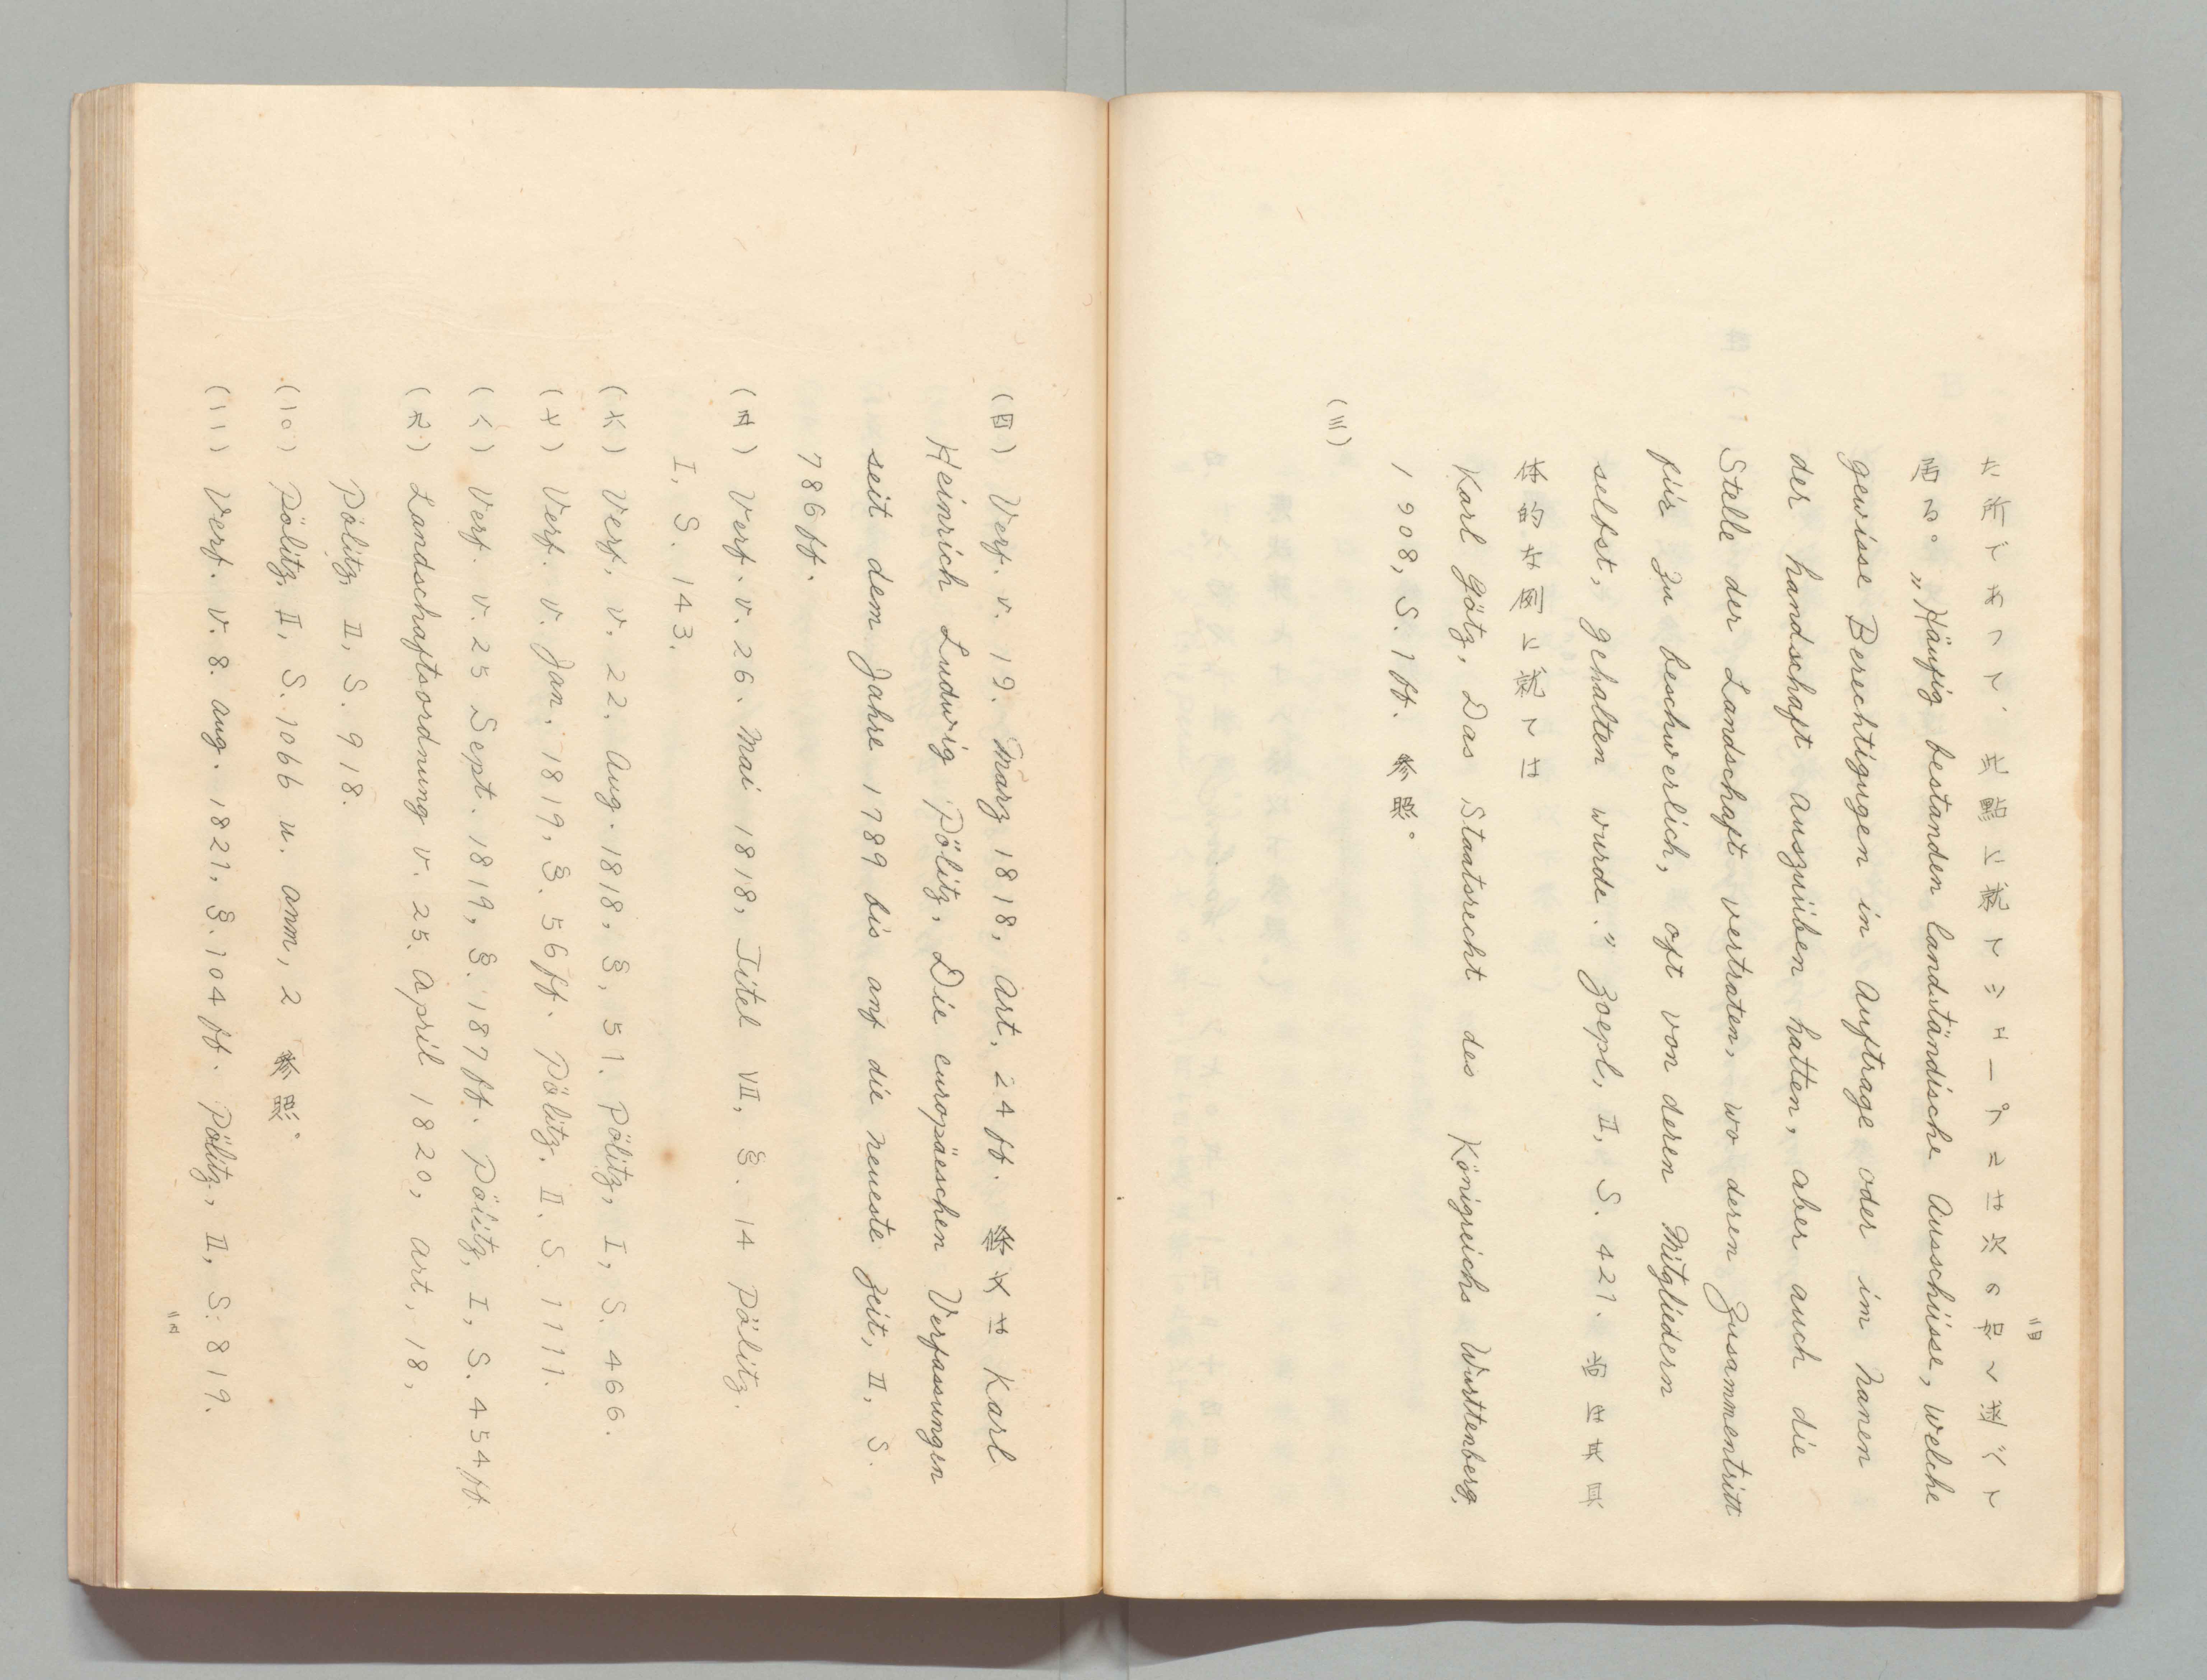 二四
た所であつて、此點に就てシエープスは次の如く述べて
居る。„Häufig bestanden landständische Ausschüsse, welche
gewisse Berechtigugen in Auftrage oder im Nanen
der handschaft auszuüben hatten, aber auch die
Stelle der Landschaft vertraten, wo deren Zusammentritt
für zu beschwerlich, oft von deren Mitgliedern
selbst, gehalten wurde." Zoepl, II, S. 421. 尚ほ其具
体的な例に就ては
Karl Götz, Das Staatsrecht des Königreichs Württenberg,
1908, S. 1 ff. 参照。
(三)
(四) Verf. v. 19. März 1818, Art, 24 ff. 条文は Karl
Heinrich Ludwig Pölitz, Die europäeschen Verfassungen
seit dem Jahre 1789 bis anf die neueste Zeit, II, S.
786 ff.
(五) Verf. v. 26. Mai 1818, Titel VII, §. 14 Pölitz.
I, S. 143.
(六) Verf, v. 22. Aug. 1818, §, 51. Pölitz, I, S. 466.
(七) Verf. v. Jan. 1819, §. 56 ff. Pölitz. II. S. 1111.
(八) Verf. v. 25 Sept. 1819, §. 187 ff. Pölitz, I, S. 454 ff.
(九) Landschaftsordnung v. 25. April 1820, Art, 18,
Pölitz, II, S. 918.
(一〇) Pölitz, II, S. 1066 u. Anm, 2 参照。
(一一) Verf. v. 8. Aug. 1821, §. 104 ff. Pölitz, II, S. 819.
二五